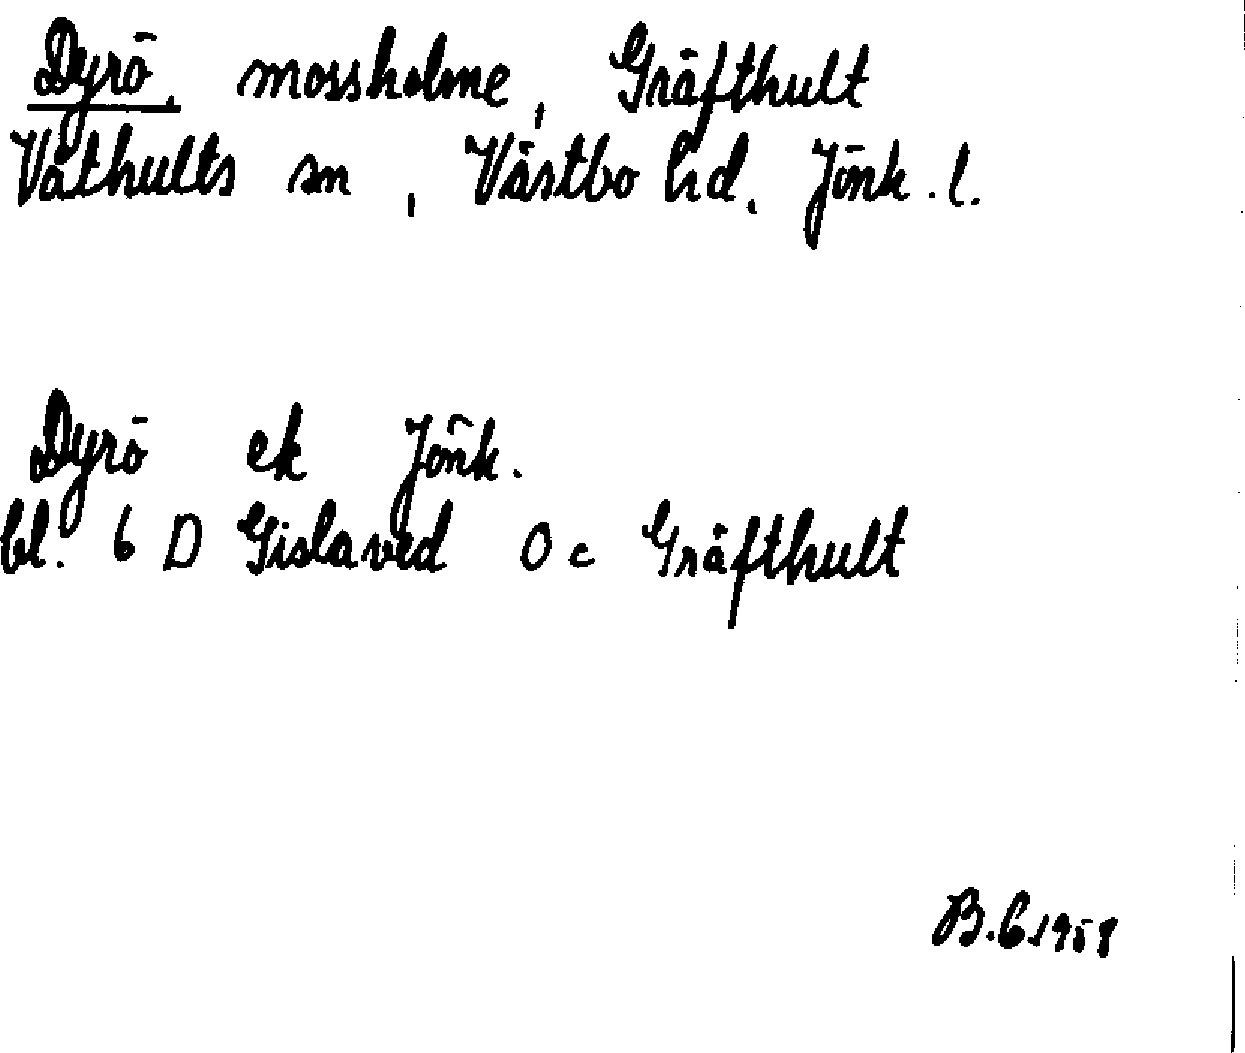 Dyrö, mossholme, Gräfthult
Våthults sn, Västbo hd. Jönk. l.
Dyrö ek Jönk.
bl. 6 D Gislaved 0 c Gräfthult
B.G.1958